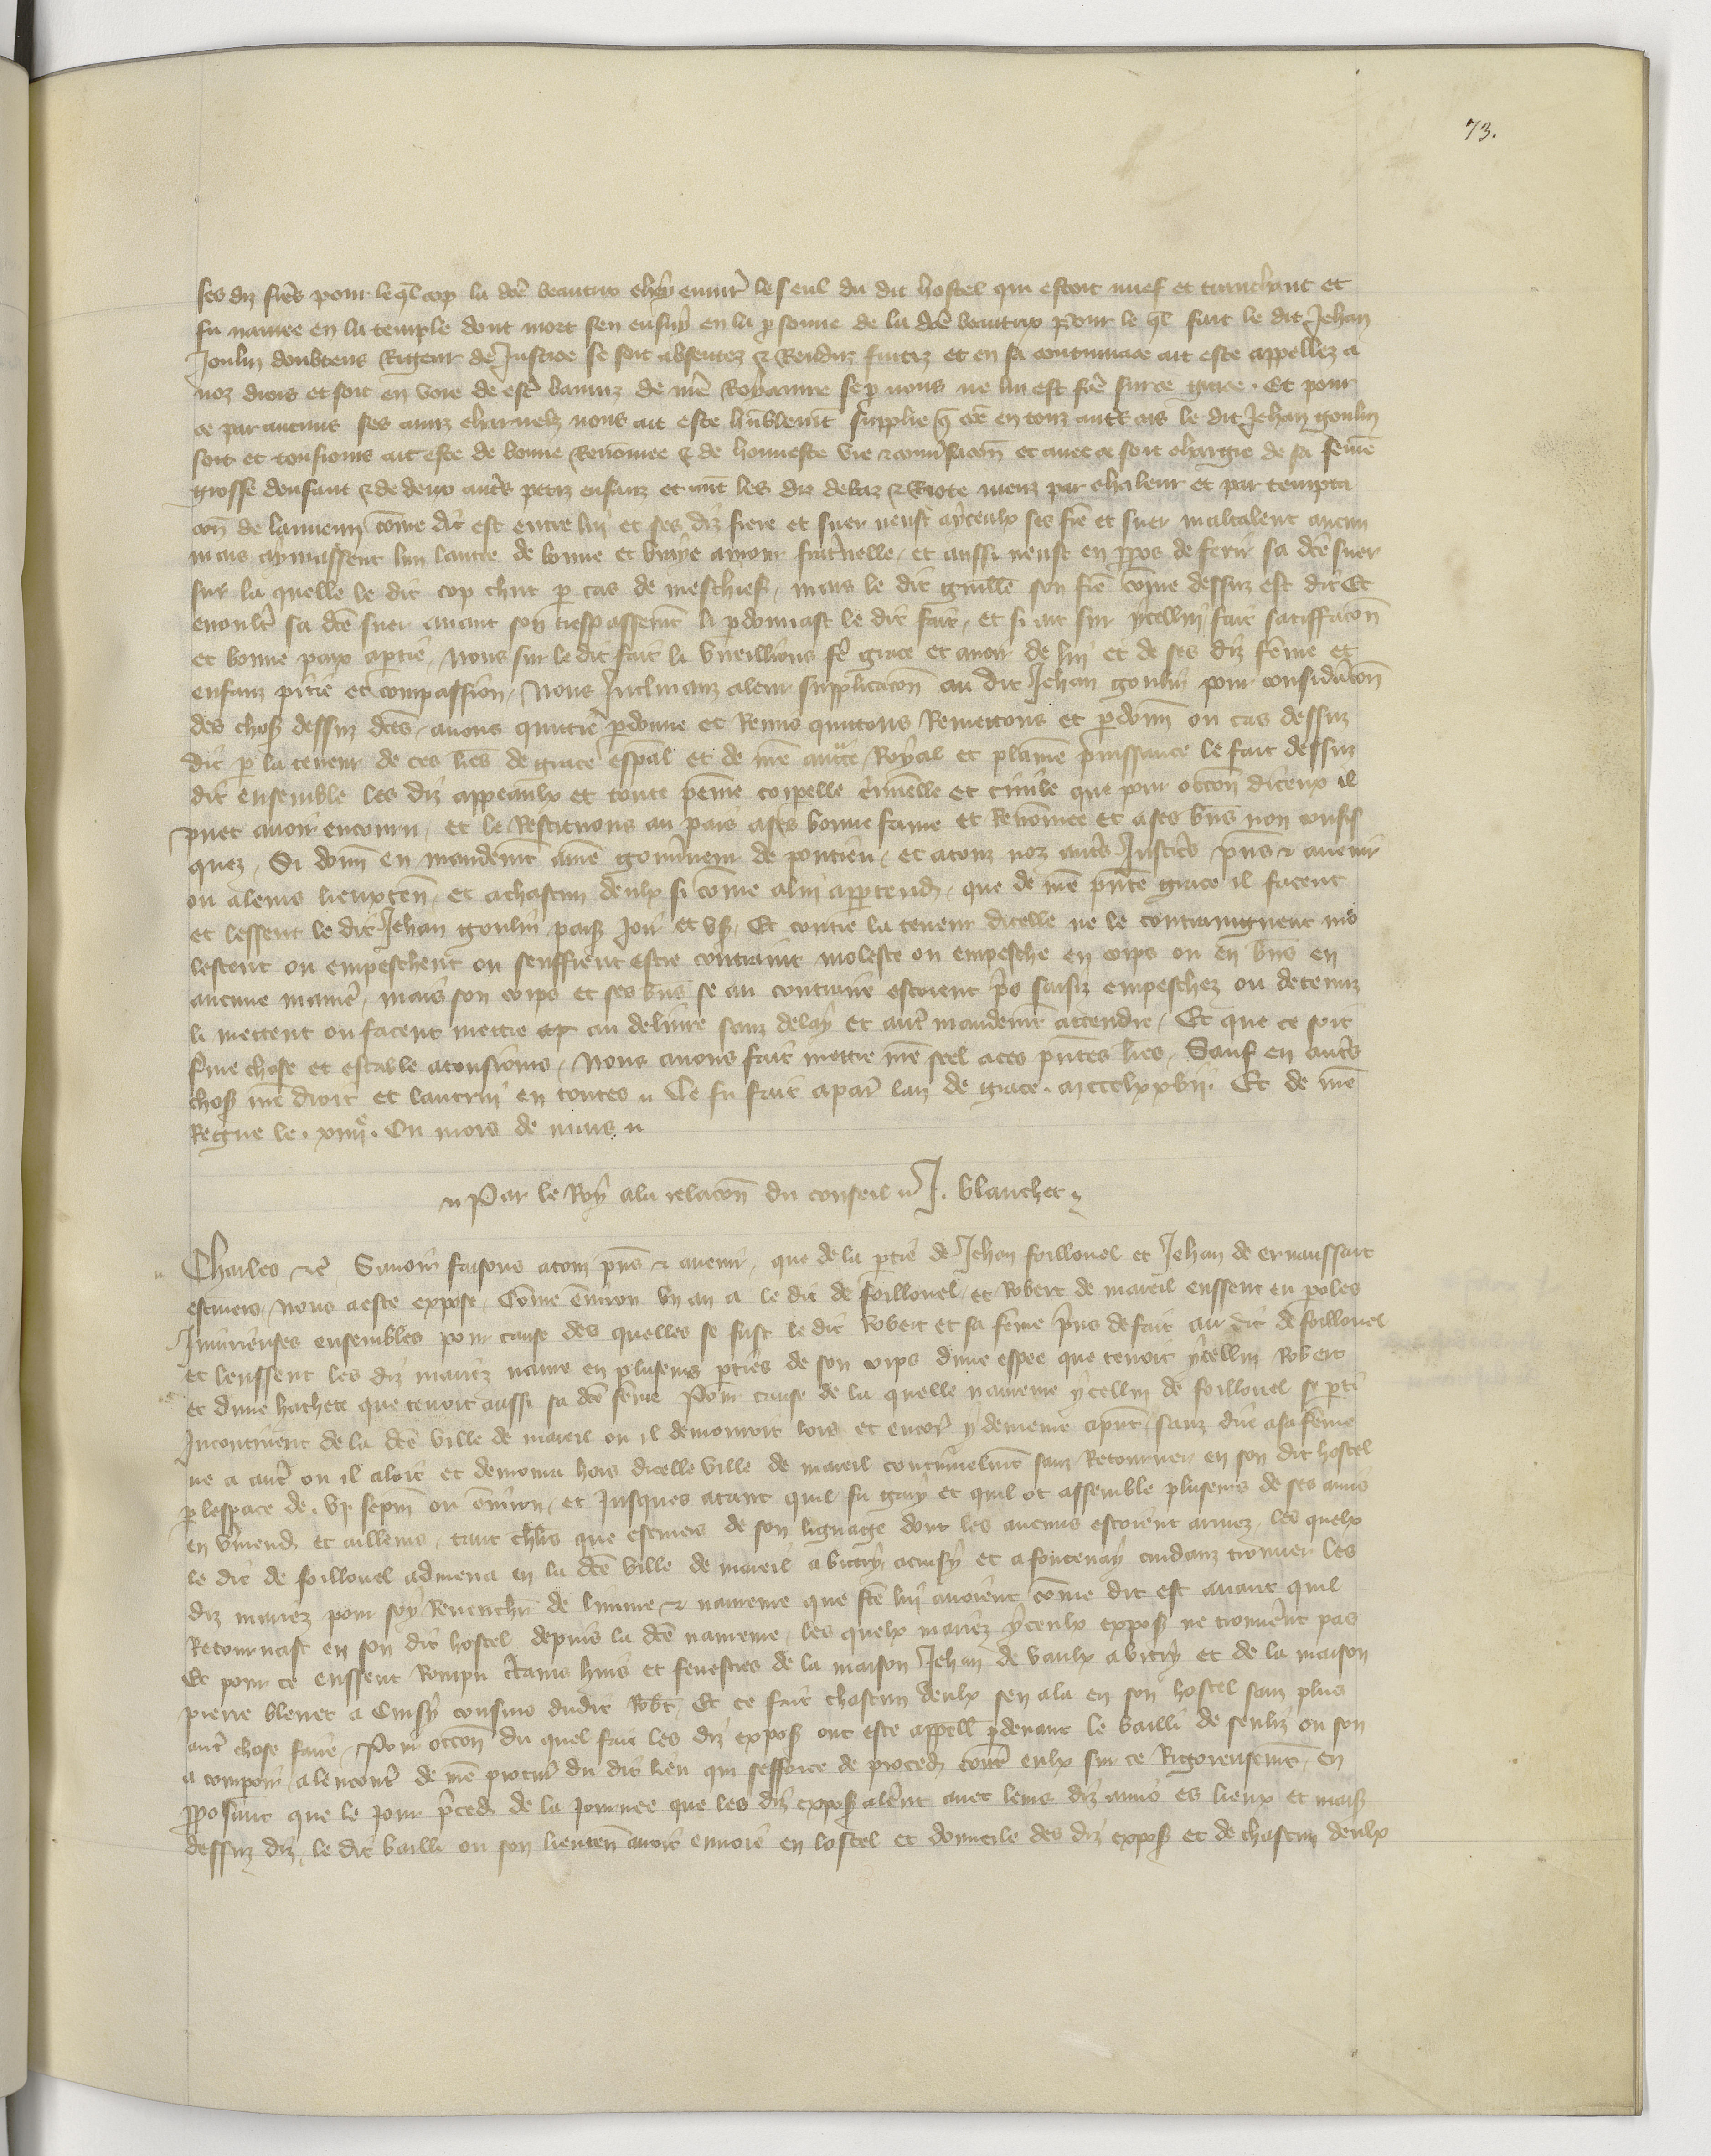 73.
ses diz freres pour lequel cop la dce beautrix chey enuirõ le seul du dit hostel qui estoit neuf et trenchant et
fu nauree en la temple dont mort sen ensuy en la psonne de la dce beautrix Pour le ql fait le dit Jehan
Joulin doubtens Rigeur de Justice se soit absentez & Renduz fuitiz et en sa contumace ait este appellez a
noz drois et soit en voie de estre banniz de nre Royaume se p nous ne lui est fce sur ce grace. Et pour
ce par aucuns ses amis charnelz nous ait este humblemt supplie q cõe en touz autres cas le dit Jehan goulin
soit et tousiours ait este de bonne Renõmee & de honneste vie & conusacõn et auec ce soit chargie de sa feme
grosse denfant & de deux autres petiz enfanz et ont les diz debaz & Riote meuz par chaleur et par tempta
cõn de lannemi cõme dit est entre lui et ses diz frere et suer neust a yceulx ses fre et suer maltalent aucun
mais aymassent lun lautre de bonne et vraye amour fraternelle, et aussi neust en ppos de ferir sa dce suer
sur la quelle le dit cop chut p cas de meschief, mais le dit guille son fre cõme dessuz est dit Et
enoultre sa dce suer auant son trespassemt li pdonnast le dit fait, et si ait sur ycellui fait satiffacõn
et bonne paix a ptie, Nous sur le dit fait li vueillions fe grace et auoir de lui et de ses diz feme et
enfanz pitie et compassion, Nous Inclinanz a leur supplicacõn au dit Jehan goulin pour consideracõn
des choses dessuz dces, auons quictie pdonne et Remis quictons Remettons et pdonns ou cas dessuz
dit p la teneur de ces lres de grace espal et de nre aucte Royal et plaine puissance le fait dessuz
dit ensemble les diz appeaulx et toute peine corpelle criminelle et ciuile que pour occõn diceux il
puet auoir encouru, et le Restituons au pais a ses bonne fame et Renõmee et a ses biens non confis
quez, Si donns en mandemt a nre gouuerneur de pontieu, et a touz noz autres Justiciers pns & auenir
ou a leurs lieuxten, et a chascun deulx si cõme a lui appartendra, que de nre pnte grace il facent
et lessent le dit Jehan goulin paisiblement Joir et user, Et contre la teneur dicelle ne le contraingnent mo
lestent ou empeschent ou seuffrent estre contraint moleste ou empesche en corps ou en biens en
aucune maniere, mais son corps et ses biens se au contraire estoient pris saisiz empeschez ou detenuz
li mettent ou facent mettre au deliure sanz delay et autre mandemt attendre, Et que ce soit
ferme chose et estable a tousiours, Nous auons fait mettre nre seel a ces pntes lres, Sauf en autres
choses nre droit et lautrui en toutes. Ce fu fait a paris lan de grace. mccclxxvii. Et de nre
Regne le. xiiiie. Ou mois de mars.
Par le Roy a la relacõn du conseil. J. blanchet.
Charles &c Sauoir faisons a touz pns & auenir, que de la ptie de Jehan foillouel et Jehan de ernaussart
escuiers, Nous a este expose, Cõme enuiron vn an a le dit de foillouel, et Robert de mareil eussent eu poles
Iniurieuses ensembles pour cause des quelles se fust le dit Robert et sa feme pris de fait au dit de foillouel
et leussent les diz mariez naure en pluseurs pties de son corps dune espee que tenoit ycellui Robert
et dune hachete que tenoit aussi sa dce feme Pour cause de la quelle naureure ycellui de foillouel se pti
Incontinent de la dce ville de mareil ou il demouroit lors et encore y demeure apnt, sanz dire a sa feme
ne a autre ou il aloit et demoura hors dicelle ville de mareil continuelmt sanz Retourner en son dit hostel
p lespace de. vi sepmaines ou enuiron, et Jusques a tant quil fu gary et quil ot assemble pluseurs de ses amis
en vermend et ailleurs, tant chlrs que escuiers de son lignage dont les aucuns estoient armez, les quelx
le dit de foillouel admena en la dce ville de mareil a vitry a cuisy et a fontenay cuidanz trouuer les
diz mariez pour soy Reuenchier de liniure & naureure que fce lui auoient cõme dit est auant quil
Retournast en son dit hostel depuis la dce naureure, les quelx mariez yceulx exposans ne trouuerent pas
Et pour ce eussent Rompu ctains huis et fenestres de la maison Jehan de vaulx a vitry et de la maison
pierre blenet a Cuisy cousins dudit Robt, Et ce fait chascun deulx sen ala en son hostel sanz plus
autre chose faire, Pour occõn du quel fait les diz exposans ont este appellez pdeuant le bailli de senliz ou son
a comparoir a lencontre de nre procureur du dit lieu qui sefforce de proceder contre eulx sur ce Rigoreusemt, En
pposant que le Jour precedent de la Journee que les diz exposans alerent auec leurs diz amis es lieux et maisons
dessuz diz, le dit bailli ou son lieuten auoit enuoie en lostel et domicile des diz exposans et de chascun deulx